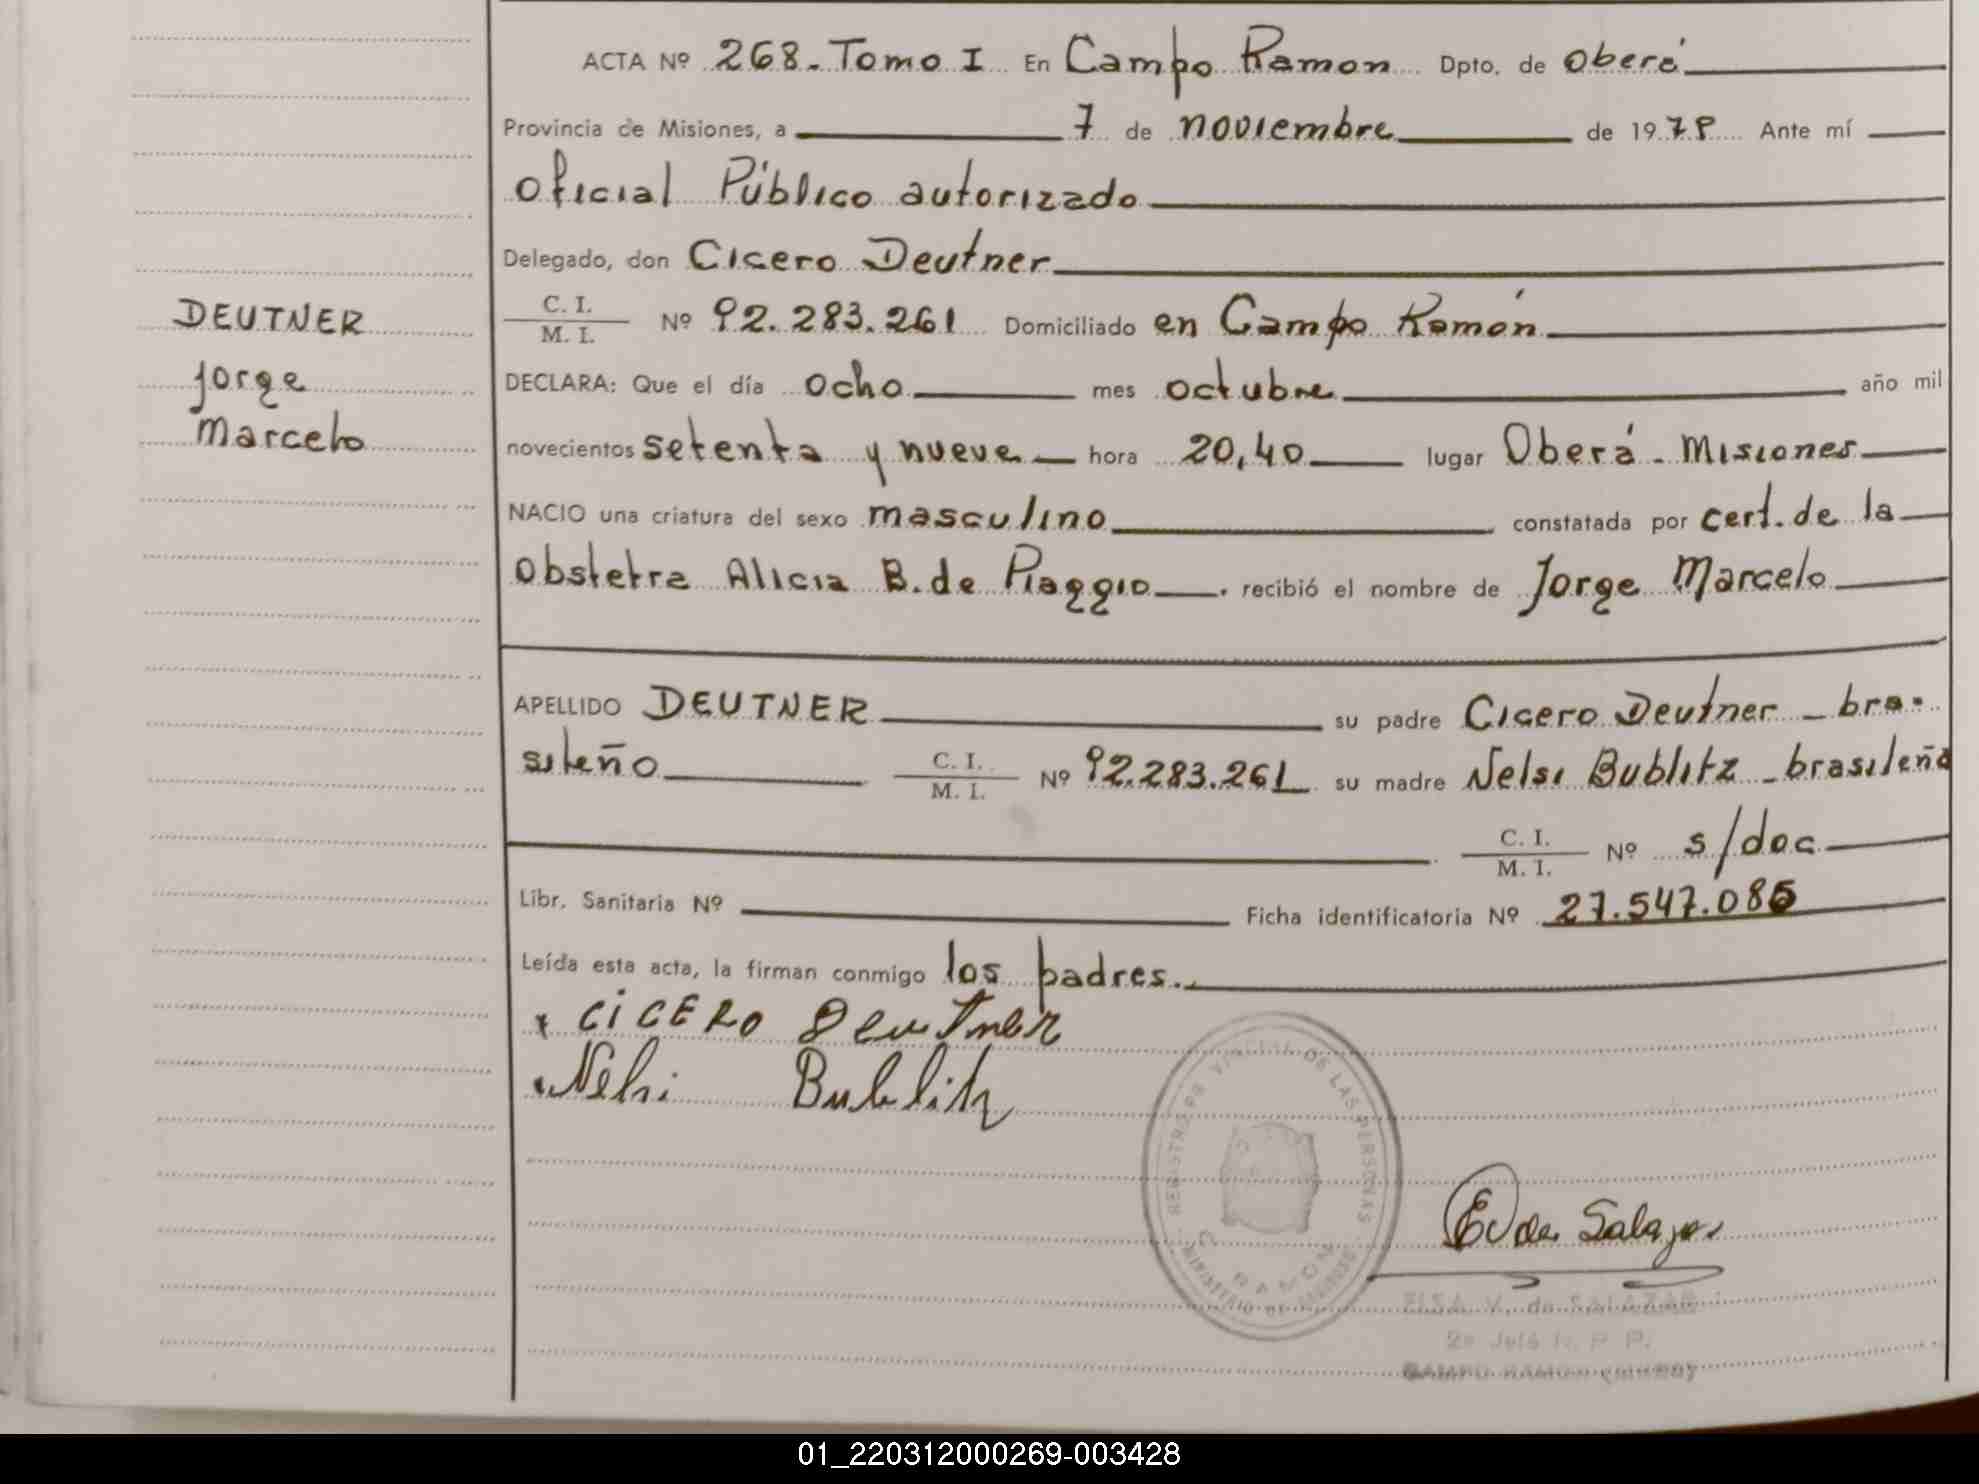 ACTA Nº 268. Tomo I En Campo Ramon Dpto. de Oberá
Provincia de Misiones, a 7 de noviembre de 1979 Ante mí
Oficial Público autorizado
Delegado, don Cicero Deutner
C. I.
M. I. Nº 92.283.261 Domiciliado en Campo Ramón
DECLARA: Que el día ocho mes octubre año mil
novecientos setenta y nueve hora 20,40 lugar Oberá - Misiones
NACIO una criatura del sexo masculino constatada por cert. de la
Obstetra Alicia B. de Piaggio. recibió el nombre de Jorge Marcelo
DEUTNER
Jorge
Marcelo
APELLIDO DEUTNER su padre Cicero Deutner - bra-
sileño C. I. M. I. Nº 92.283.261 su madre Nelsi Bublitz - brasileña
C. I.
M. I. Nº s/doc
Libr. Sanitaria Nº Ficha identificatoria Nº 27.547.085
Leída esta acta, la firman conmigo los padres.
CICERO Deutner
Nelsi Bublitz
REGISTRO PROVINCIAL DE LAS PERSONAS
C. RAMON
MINISTERIO DE GOBIERNO
E V de Salazar
ELSA V. de SALAZAR
CAMPO RAMON
01_220312000269-003428